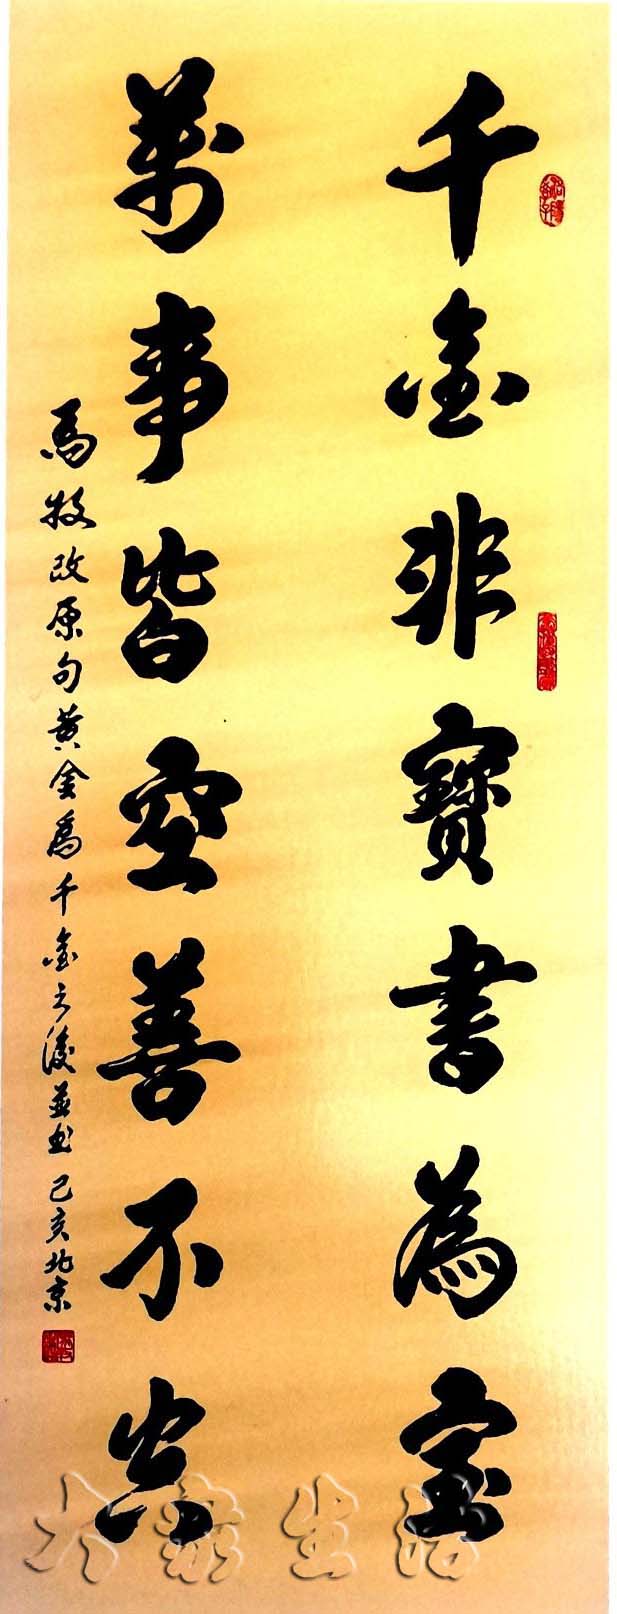 千金非寶書為宝
萬事皆空善不空
馬牧改原句黄金為千金之後並书 己亥北京
大家生活